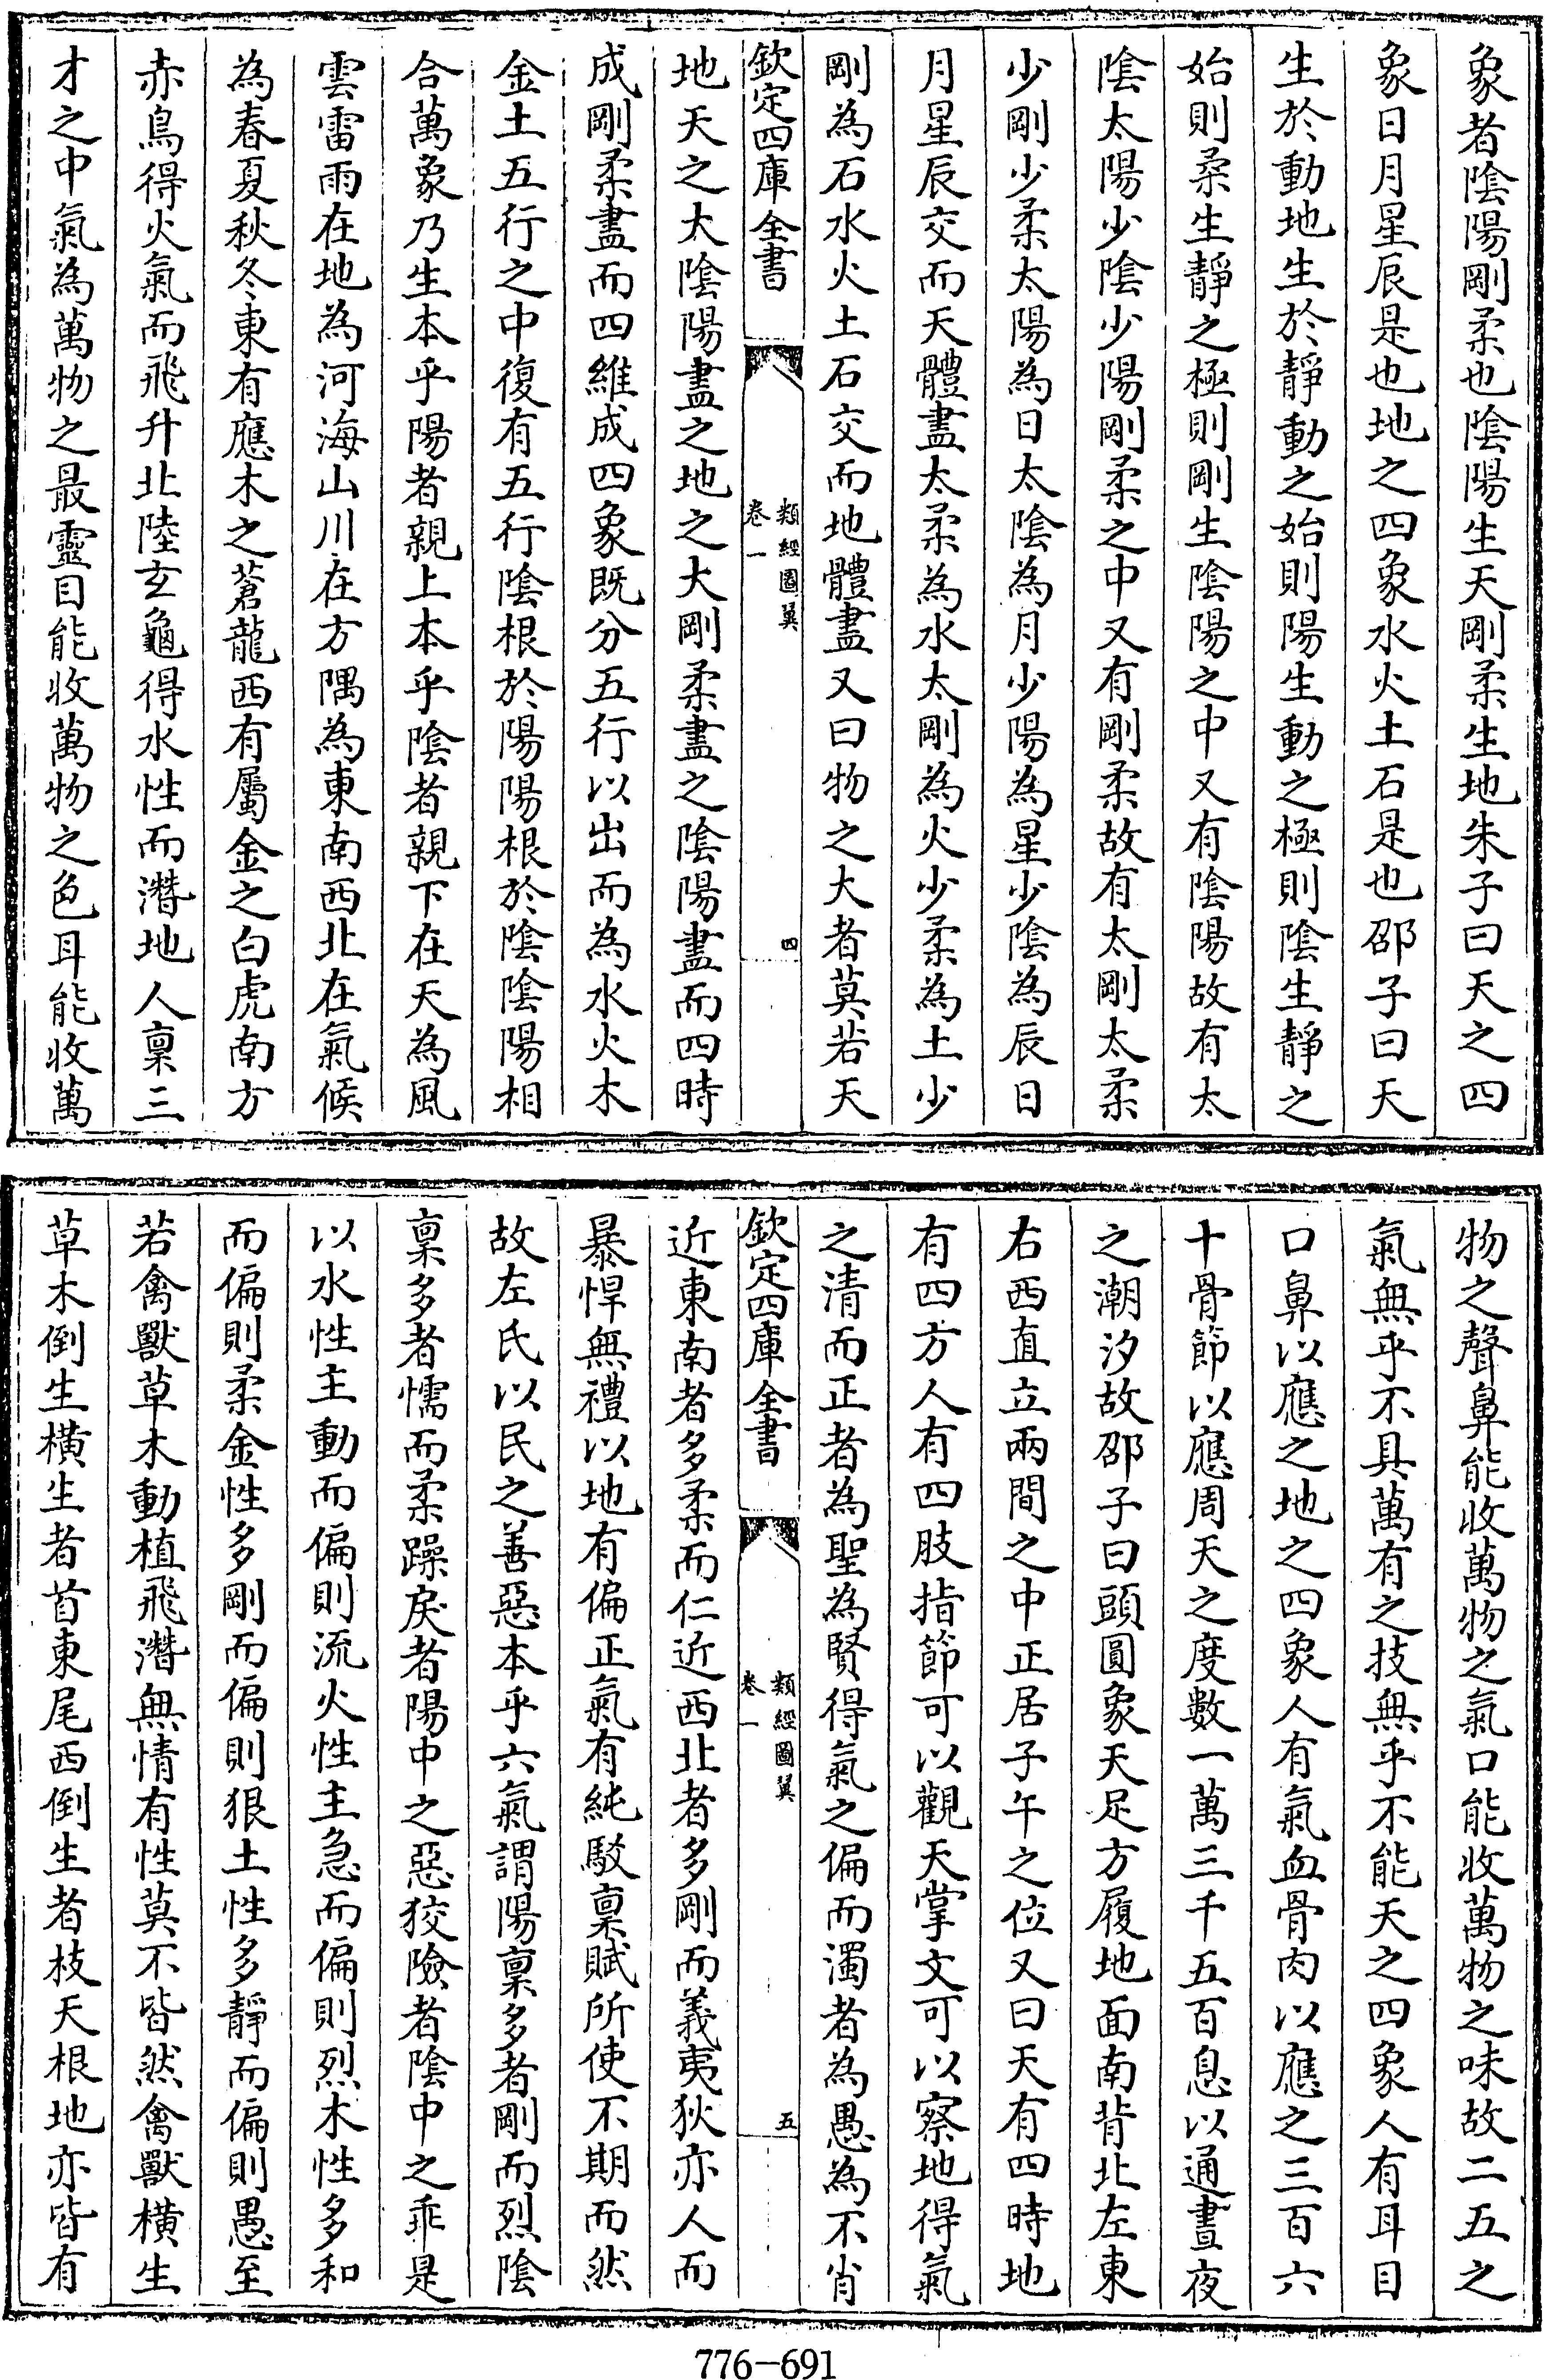 象者陰陽剛柔也陰陽生天剛柔生地朱子曰天之四
象日月星辰是也地之四象水火土石是也邵子曰天
生於動地生於靜動之始則陽生動之極則陰生靜之
始則柔生靜之極則剛生陰陽之中又有陰陽故有太
陰太陽少陰少陽剛柔之中又有剛柔故有太剛太柔
少剛少柔太陽為日太陰為月少陽為星少陰為辰日
月星辰交而天體盡太柔為水太剛為火少柔為土少
剛為石水火土石交而地體盡又曰物之大者莫若天
欽定四庫全書
類經圖翼
卷一
四
地天之大陰陽盡之地之大剛柔盡之陰陽盡而四時
成剛柔盡而四維成四象既分五行以出而為水火木
金土五行之中復有五行陰根於陽陽根於陰陰陽相
合萬象乃生本乎陽者親上本乎陰者親下在天為風
雲雷雨在地為河海山川在方隅為東南西北在氣候
為春夏秋冬東有應木之蒼龍西有屬金之白虎南方
赤鳥得火氣而飛升北陸玄龜得水性而潛地人稟三
才之中氣為萬物之最靈目能收萬物之色耳能收萬
物之聲鼻能收萬物之氣口能收萬物之味故二五之
氣無乎不具萬有之技無乎不能天之四象人有耳目
口鼻以應之地之四象人有氣血骨肉以應之三百六
十骨節以應周天之度數一萬三千五百息以通晝夜
之潮汐故邵子曰頭圓象天足方履地面南背北左東
右西直立兩間之中正居子午之位又曰天有四時地
有四方人有四肢指節可以觀天掌文可以察地得氣
之清而正者為聖為賢得氣之偏而濁者為愚為不肖
欽定四庫全書
類經圖翼
卷一
五
近東南者多柔而仁近西北者多剛而義夷狄亦人而
暴悍無禮以地有偏正氣有純駁稟賦所使不期而然
故左氏以民之善惡本乎六氣謂陽稟多者剛而烈陰
稟多者懦而柔躁戾者陽中之惡狡險者陰中之乖是
以水性主動而偏則流火性主急而偏則烈木性多和
而偏則柔金性多剛而偏則狠土性多靜而偏則愚至
若禽獸草木動植飛潛無情有性莫不皆然禽獸橫生
草木倒生橫生者首東尾西倒生者枝天根地亦皆有
776-691